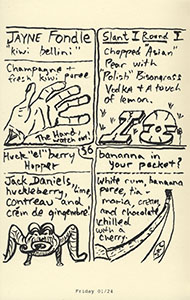 JAYNE Fondle
"kiwi bellini"
Champagne +
fresh kiwi puree
The Hand
watch out!
Slant I Round I
Chopped "Asian"
Pear with
Polish Bisongrass
Vodka + A touch
of lemon.
Huck "el" berry
Hopper
$6
Jack Daniels,
huckleberry, lime,
Contreau and
crèm de gingembre!
bananna in
your pocket?
White rum, bananna
puree, tia
maria, cream
and chocolate
chilled
with a
cherry
Friday 01/24